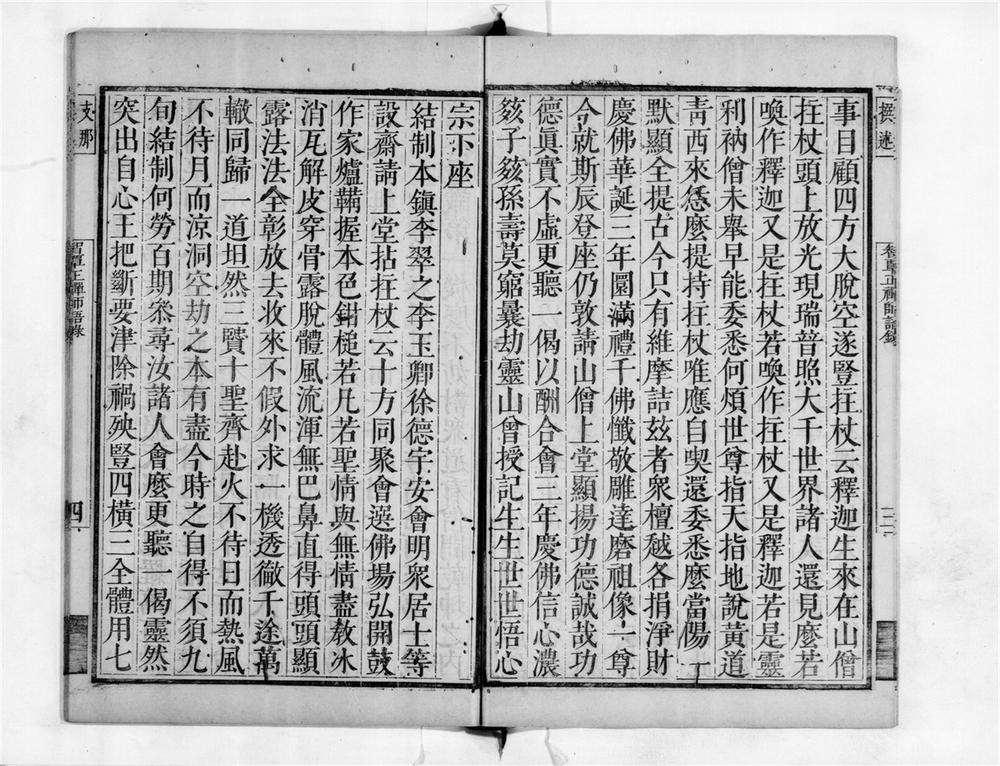 撰述
事目顧四方大脫空遂豎拄杖云釋迦生來在山僧
拄杖頭上放光現瑞普照大千世界諸人還見麼若
喚作釋迦又是拄杖若喚作拄杖又是釋迦若是靈
利衲僧未舉早能委悉何煩世尊指天指地說黃道
青西來恁麼提持拄杖唯應自喫還委悉麼當陽一
默顯全提古今只有維摩詰玆者眾檀越各捐淨財
慶佛華誕三年圓滿禮千佛懺敬雕達磨祖像一尊
令就斯辰登座仍敦請山僧上堂顯揚功德誠哉功
德眞實不虛更聽一偈以酬合會三年慶佛信心濃
玆子玆孫壽莫窮曩劫靈山曾授記生生世世悟心
宗下座
結制本鎮李翠之李玉卿徐德宇安會明衆居士等
設齋請上堂拈拄杖云十方同聚會選佛場弘開鼓
作家爐鞴握本色鉗槌若凡若聖情與無情盡敎冰
消瓦解皮穿骨露脫體風流渾無巴鼻直得頭頭顯
露法法全彰放去收來不假外求一機透徹千途萬
轍同歸一道坦然三賢十聖齊赴火不待日而熱風
不待月而涼洞空劫之本有盡今時之自得不須九
旬結制何勞百期叅尋汝諸人會麼更聽一偈靈然
突出自心王把斷要津除禍殃豎四橫三全體用七
支那
四